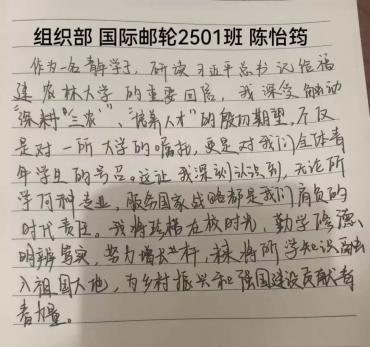 组织部 国际邮轮2501班 陈怡筠
作为一名青年学子，研读习近平总书记给福
建农林大学的重要回信，我深受触动
"深耕'三农'、"培养人才"的殷切期望，不仅
是对一所大学的嘱托，更是对我们全体青
年学生的号召。这让我深刻认识到，无论所
学何种专业，服务国家战略都是我们肩负的
时代责任。我将珍惜在校时光，勤学修德
明辨笃实，努力增长才干，未来将所学知识融
入祖国大地，为乡村振兴和强国建设贡献青
春力量。